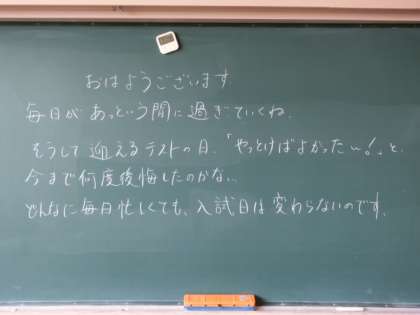 おはようございます
毎日があっという間に過ぎていくね.
そうして迎えるテストの日.「やっとけばよかった〜!」と.
今まで何度後悔したのかな...
どんなに毎日忙しくても、入試日は変わらないのです.